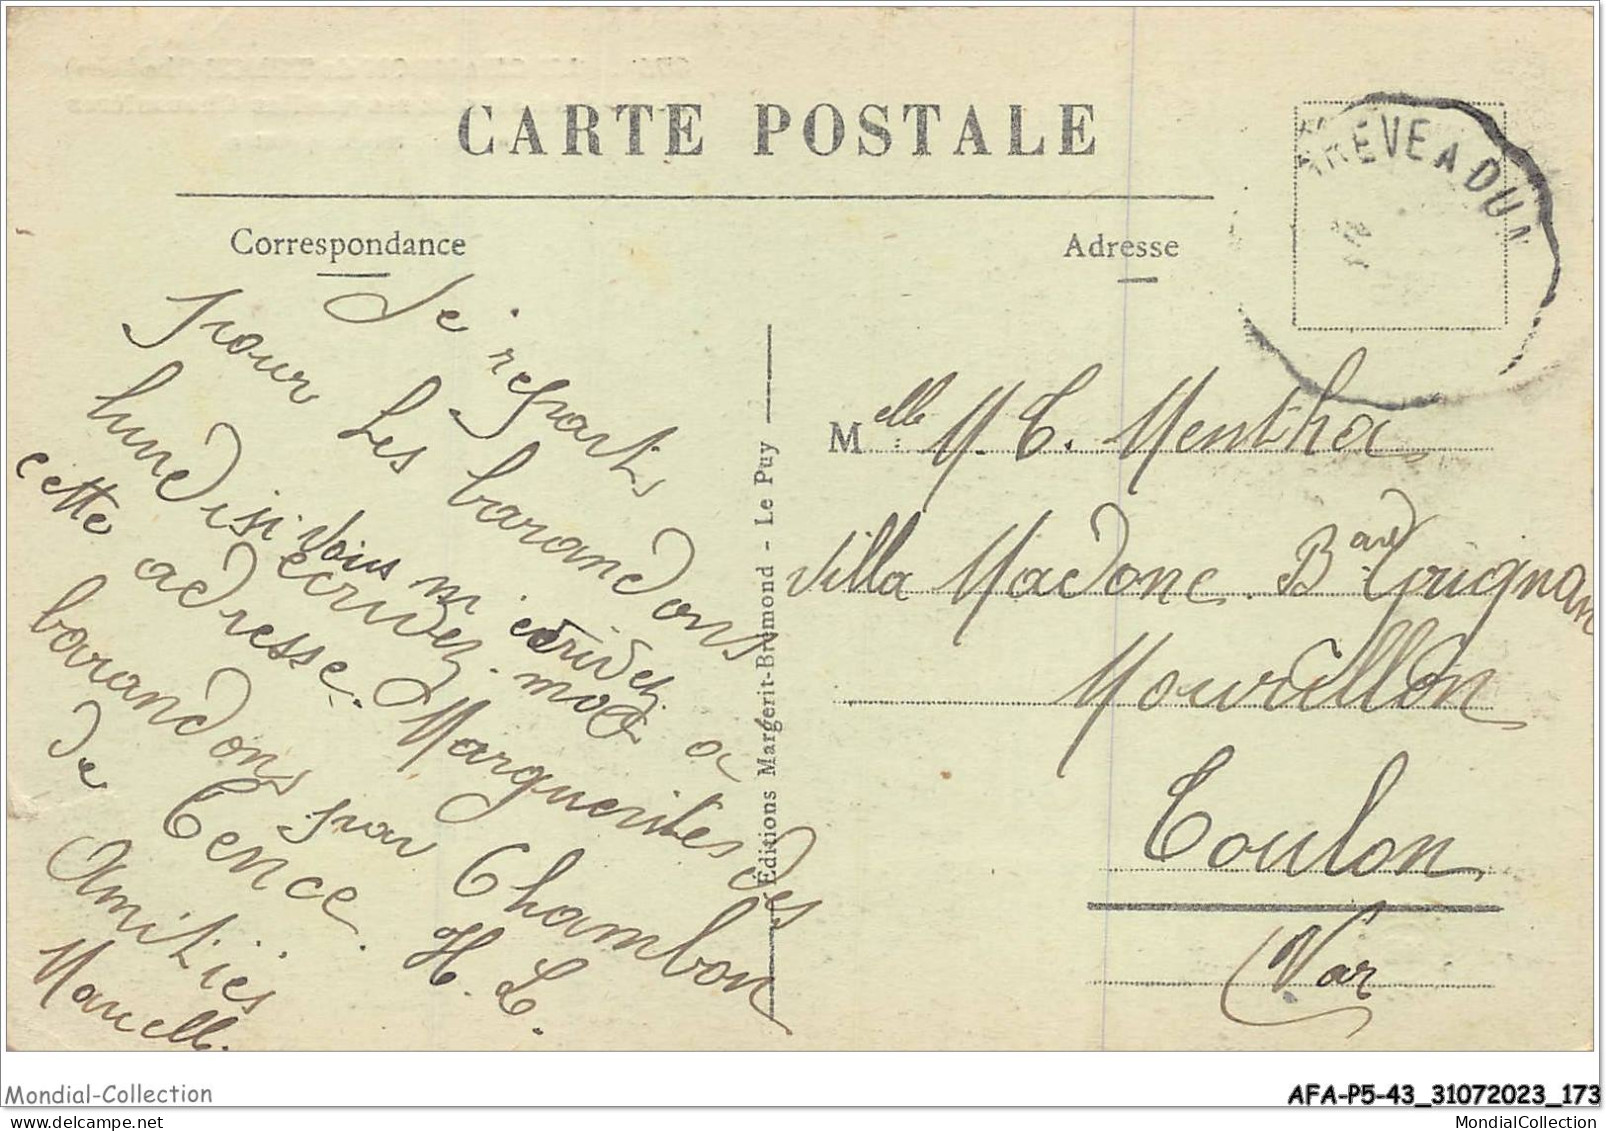 CARTE POSTALE
Correspondance
Adresse
REVE A DUN
Je repart
pour les barandons
lundi si vous m'écrivez
écrivez-moi a
cette adresse. Marguerites des
barandons par Chambon
de Tence. H. L.
Amitiés
Marcelle.
Éditions Margerit-Brémond - Le Puy
Melle M. T. Mentha
Villa Madone. Bard Grignan
Mourillon
Toulon
Var
Mondial-Collection
AFA-P5-43_31072023_173
www.delcampe.net
MondialCollection